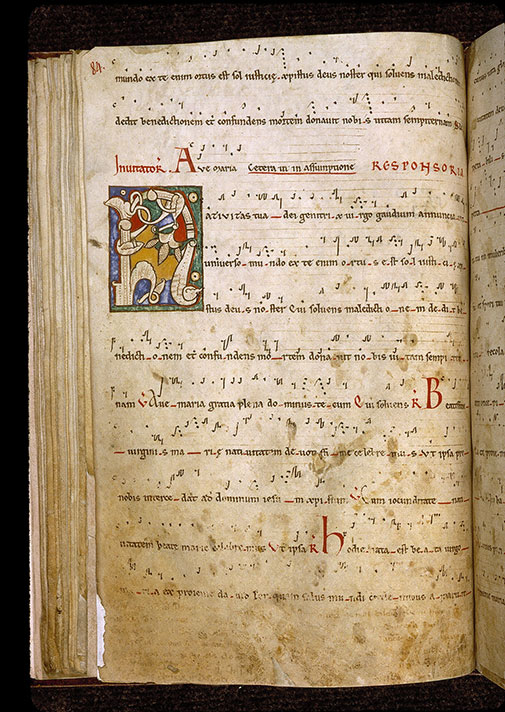 84.
mundo ex te enim ortus est sol iusticię xpistus deus noster qui soluens maledictio
dedit benedictionem et confundens mortem donauit nobis uitam sempiternam
Inuitator. Aue maria Cetera ut in assumptione RESPONSORIA
NATIVITAS tua dei genitrix uirgo gaudium annuncia
uniuerso mundo ex te enim ortus est sol iusticię
xpistus deus noster Qui soluens maledictionem dedit be
nedictionem et confundens mortem donauit nobis uitam sempiter
nam V Aue maria gratia plena dominus tecum Qui soluens R Beatissime
uirginis marię natiuitatem deuotissime celebremus Vt ipsa pro
nobis intercedat ad dominum iesum xpistum V Cum iocunditate nati
uitatem beate marie celebremus Vt ipsa R Hodie nata est beata uirgo
maria ex progenie dauid Per quam salus mundi credentibus